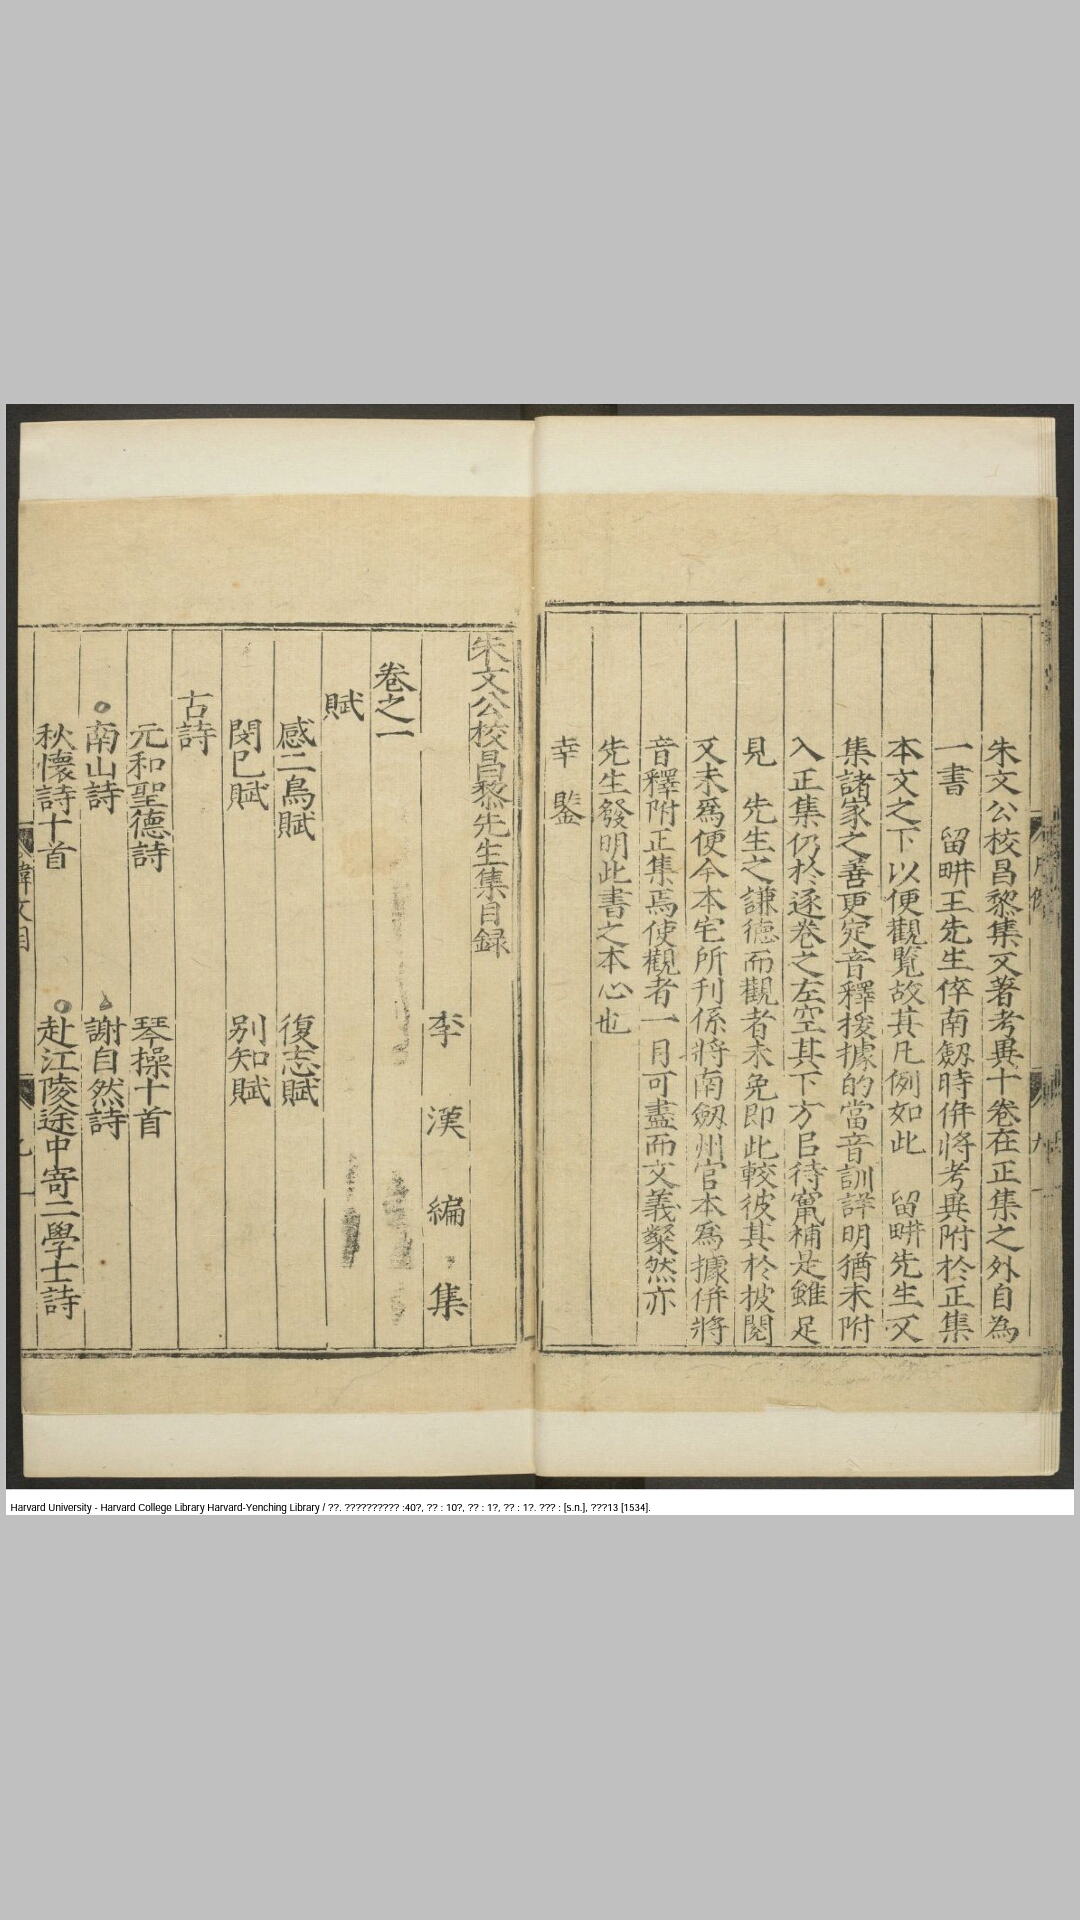 朱文公校昌黎集又著考異十卷在正集之外自為
一書　留畊王先生倅南劔時併將考異附於正集
本文之下以便觀覽故其凡例如此　留畊先生又
集諸家之善更定音釋援據的當音訓詳明猶未附
入正集仍於逐卷之左空其下方㠯待竄補是雖足
見　先生之謙德而觀者未免即此較彼其於披閱
又未爲便今本宅所刊係將南劔州官本爲據併將
音釋附正集焉使觀者一目可盡而文義粲然亦
先生發明此書之本心也
幸　鑒
朱文公校昌黎先生集目録
李　漢　編　集
卷之一
賦
感二鳥賦　復志賦
閔己賦　别知賦
古詩
元和聖德詩　琴操十首
南山詩　謝自然詩
秋懷詩十首　赴江陵途中寄二學士詩
韓文目
Harvard University - Harvard College Library Harvard-Yenching Library / ??. ?????????? :40?, ?? : 10?, ?? : 1?, ?? : 1?. ??? : [s.n.], ???13 [1534].